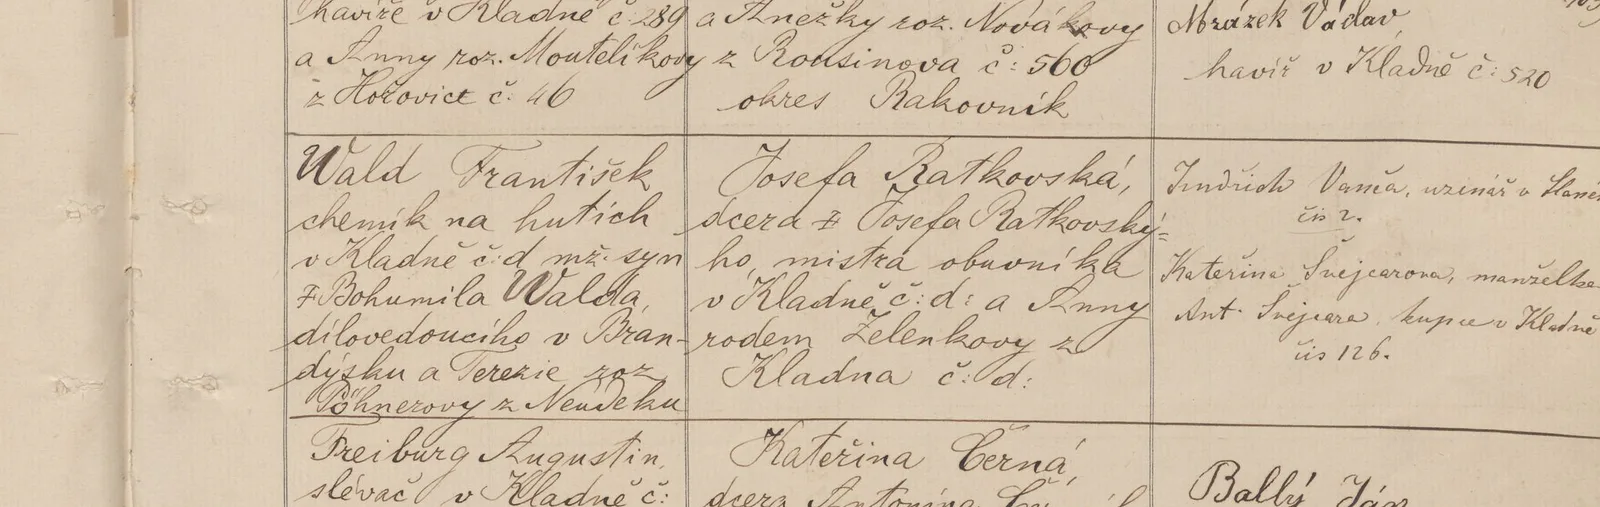 havíře v Kladně č. 289
a Anny roz. Moutelíkovy
z Hořovic č. 46
a Anežky roz. Novákovy
z Rousinova č: 560
okres Rakovník
Mrázek Václav,
havíř v Kladně č: 520
Wald František
chemik na hutích
v Kladně č:d mž. syn
Bohumila Walda,
dílovedoucího v Bran-
dýsku a Terezie roz
Pöhnerovy z Neudeku
Josefa Ratkovská,
dcera Josefa Ratkovský=
ho, mistra obuvníka
v Kladně č: d: a Anny
rodem Zelenkovy z
Kladna č: d:
Jindřich Vaněa, uzinář v Slaném
čís 2.
Kateřina Švejcarova, manželka
Ant. Švejcara, kupce v Kladně
čís 126.
Freiburg Augustin,
slévač v Kladně č:
Kateřina Černá,
dcera Antonína
Ballý Ján